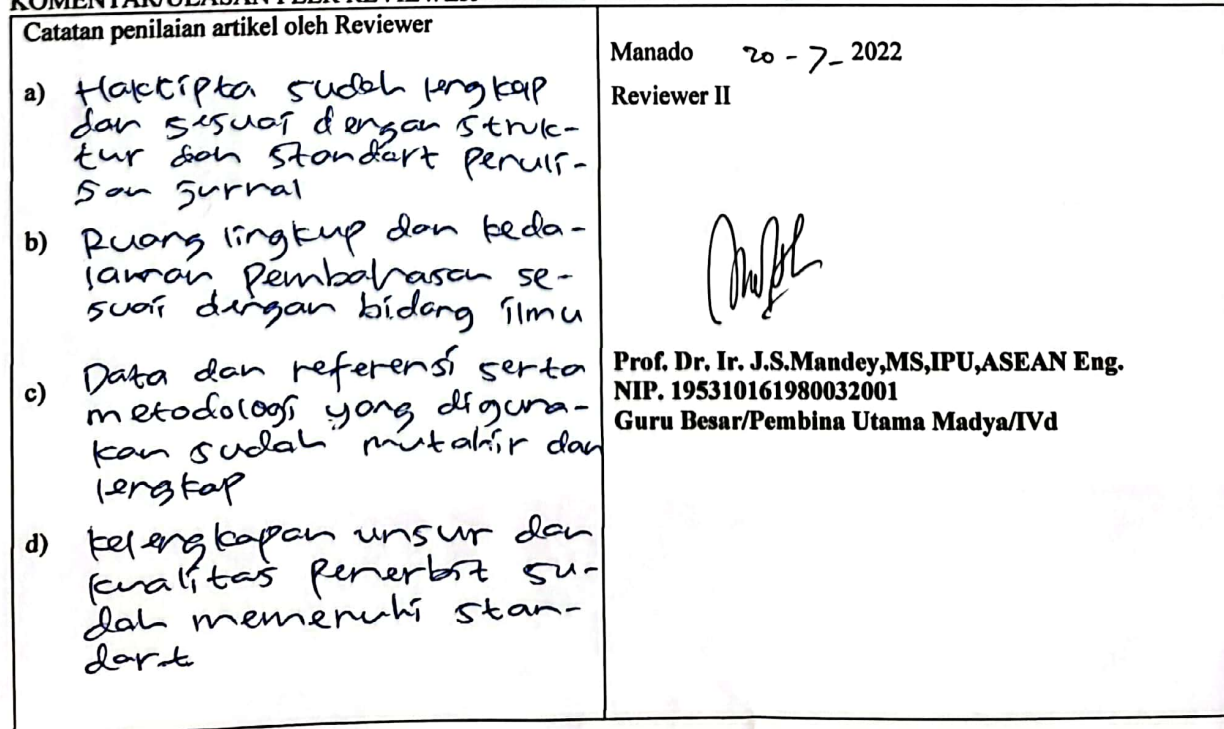 KOMENTAR/ULASAN PEER REVIEWER
Catatan penilaian artikel oleh Reviewer
a) Hakcipta sudah lengkap
dan sesuai dengan struk-
tur dan standart penuli-
san jurnal
b) Ruang lingkup dan keda-
laman pembahasan se-
suai dengan bidang ilmu
c) Data dan referensi serta
metodologi yang diguna-
kan sudah mutahir dan
lengkap
d) kelengkapan unsur dan
kualitas penerbit su-
dah memenuhi stan-
dart
Manado 20 - 7 - 2022
Reviewer II
Prof. Dr. Ir. J.S.Mandey,MS,IPU,ASEAN Eng.
NIP. 195310161980032001
Guru Besar/Pembina Utama Madya/IVd